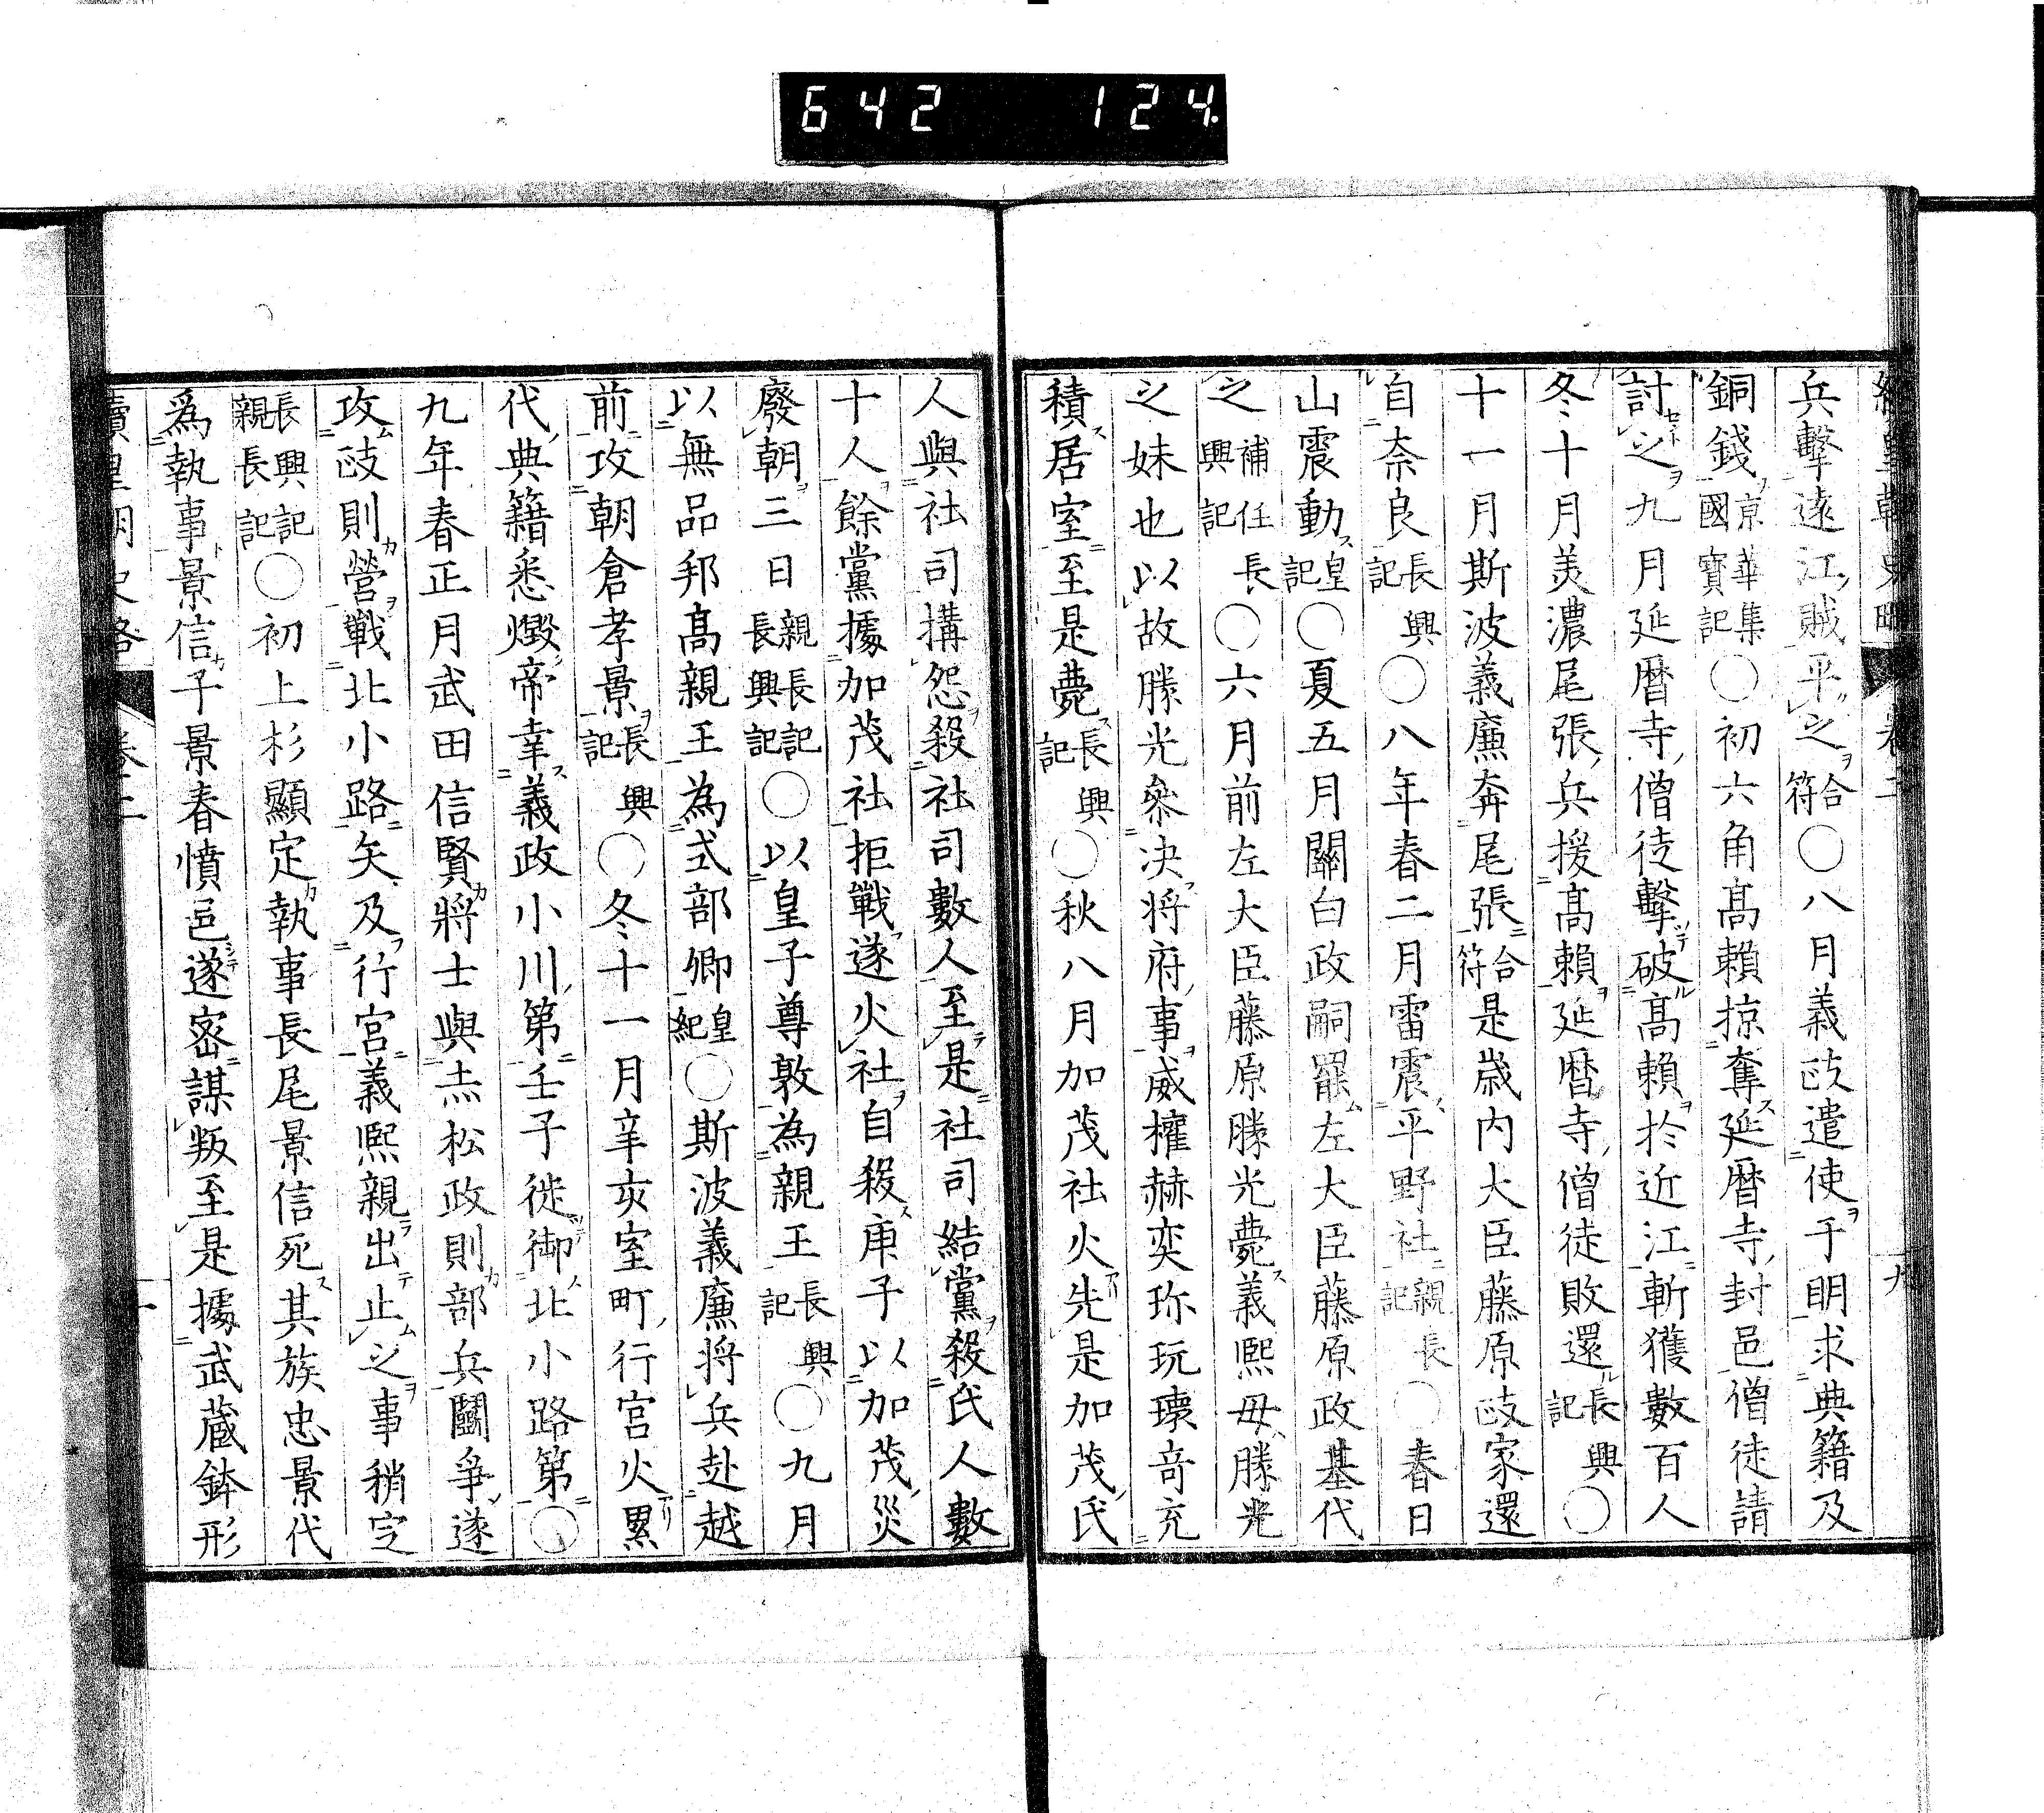 642 124
兵擊遠江賊平之合符〇八月義政遣使于明求典籍及
銅錢京華集國寶記〇初六角高賴掠奪延曆寺封邑僧徒請
討之九月延曆寺僧徒擊破高賴於近江斬獲數百人
冬十月美濃尾張兵援高賴延曆寺僧徒敗還長興記〇
十一月斯波義廉奔尾張合符是歲內大臣藤原政家還
自奈良長興記〇八年春二月雷震平野社親長記〇春日
山震動皇記〇夏五月關白政嗣罷左大臣藤原政基代
之補任長興記〇六月前左大臣藤原勝光薨義熙母勝光
之妹也以故勝光叅决将府事威權赫奕珎玩瓌竒充
積居室至是薨長興記〇秋八月加茂社火先是加茂氏
人與社司搆怨殺社司數人至是社司結黨殺氏人數
十人餘黨據加茂社拒戰遂火社自殺庚子以加茂災
廢朝三日親長記長興記〇以皇子尊敦為親王長興記〇九月
以無品邦高親王為式部卿皇紀〇斯波義廉将兵赴越
前攻朝倉孝景長興記〇冬十一月辛亥室町行宮火累
代典籍悉燬帝幸義政小川第壬子徙御北小路第〇
九年春正月武田信賢將士與赤松政則部兵鬪爭遂
攻政則營戰北小路矢及行宮義熙親出止之事稍定
長興記親長記〇初上杉顯定執事長尾景信死其族忠景代
爲執事景信子景春憤邑遂密謀叛至是據武蔵鉢形